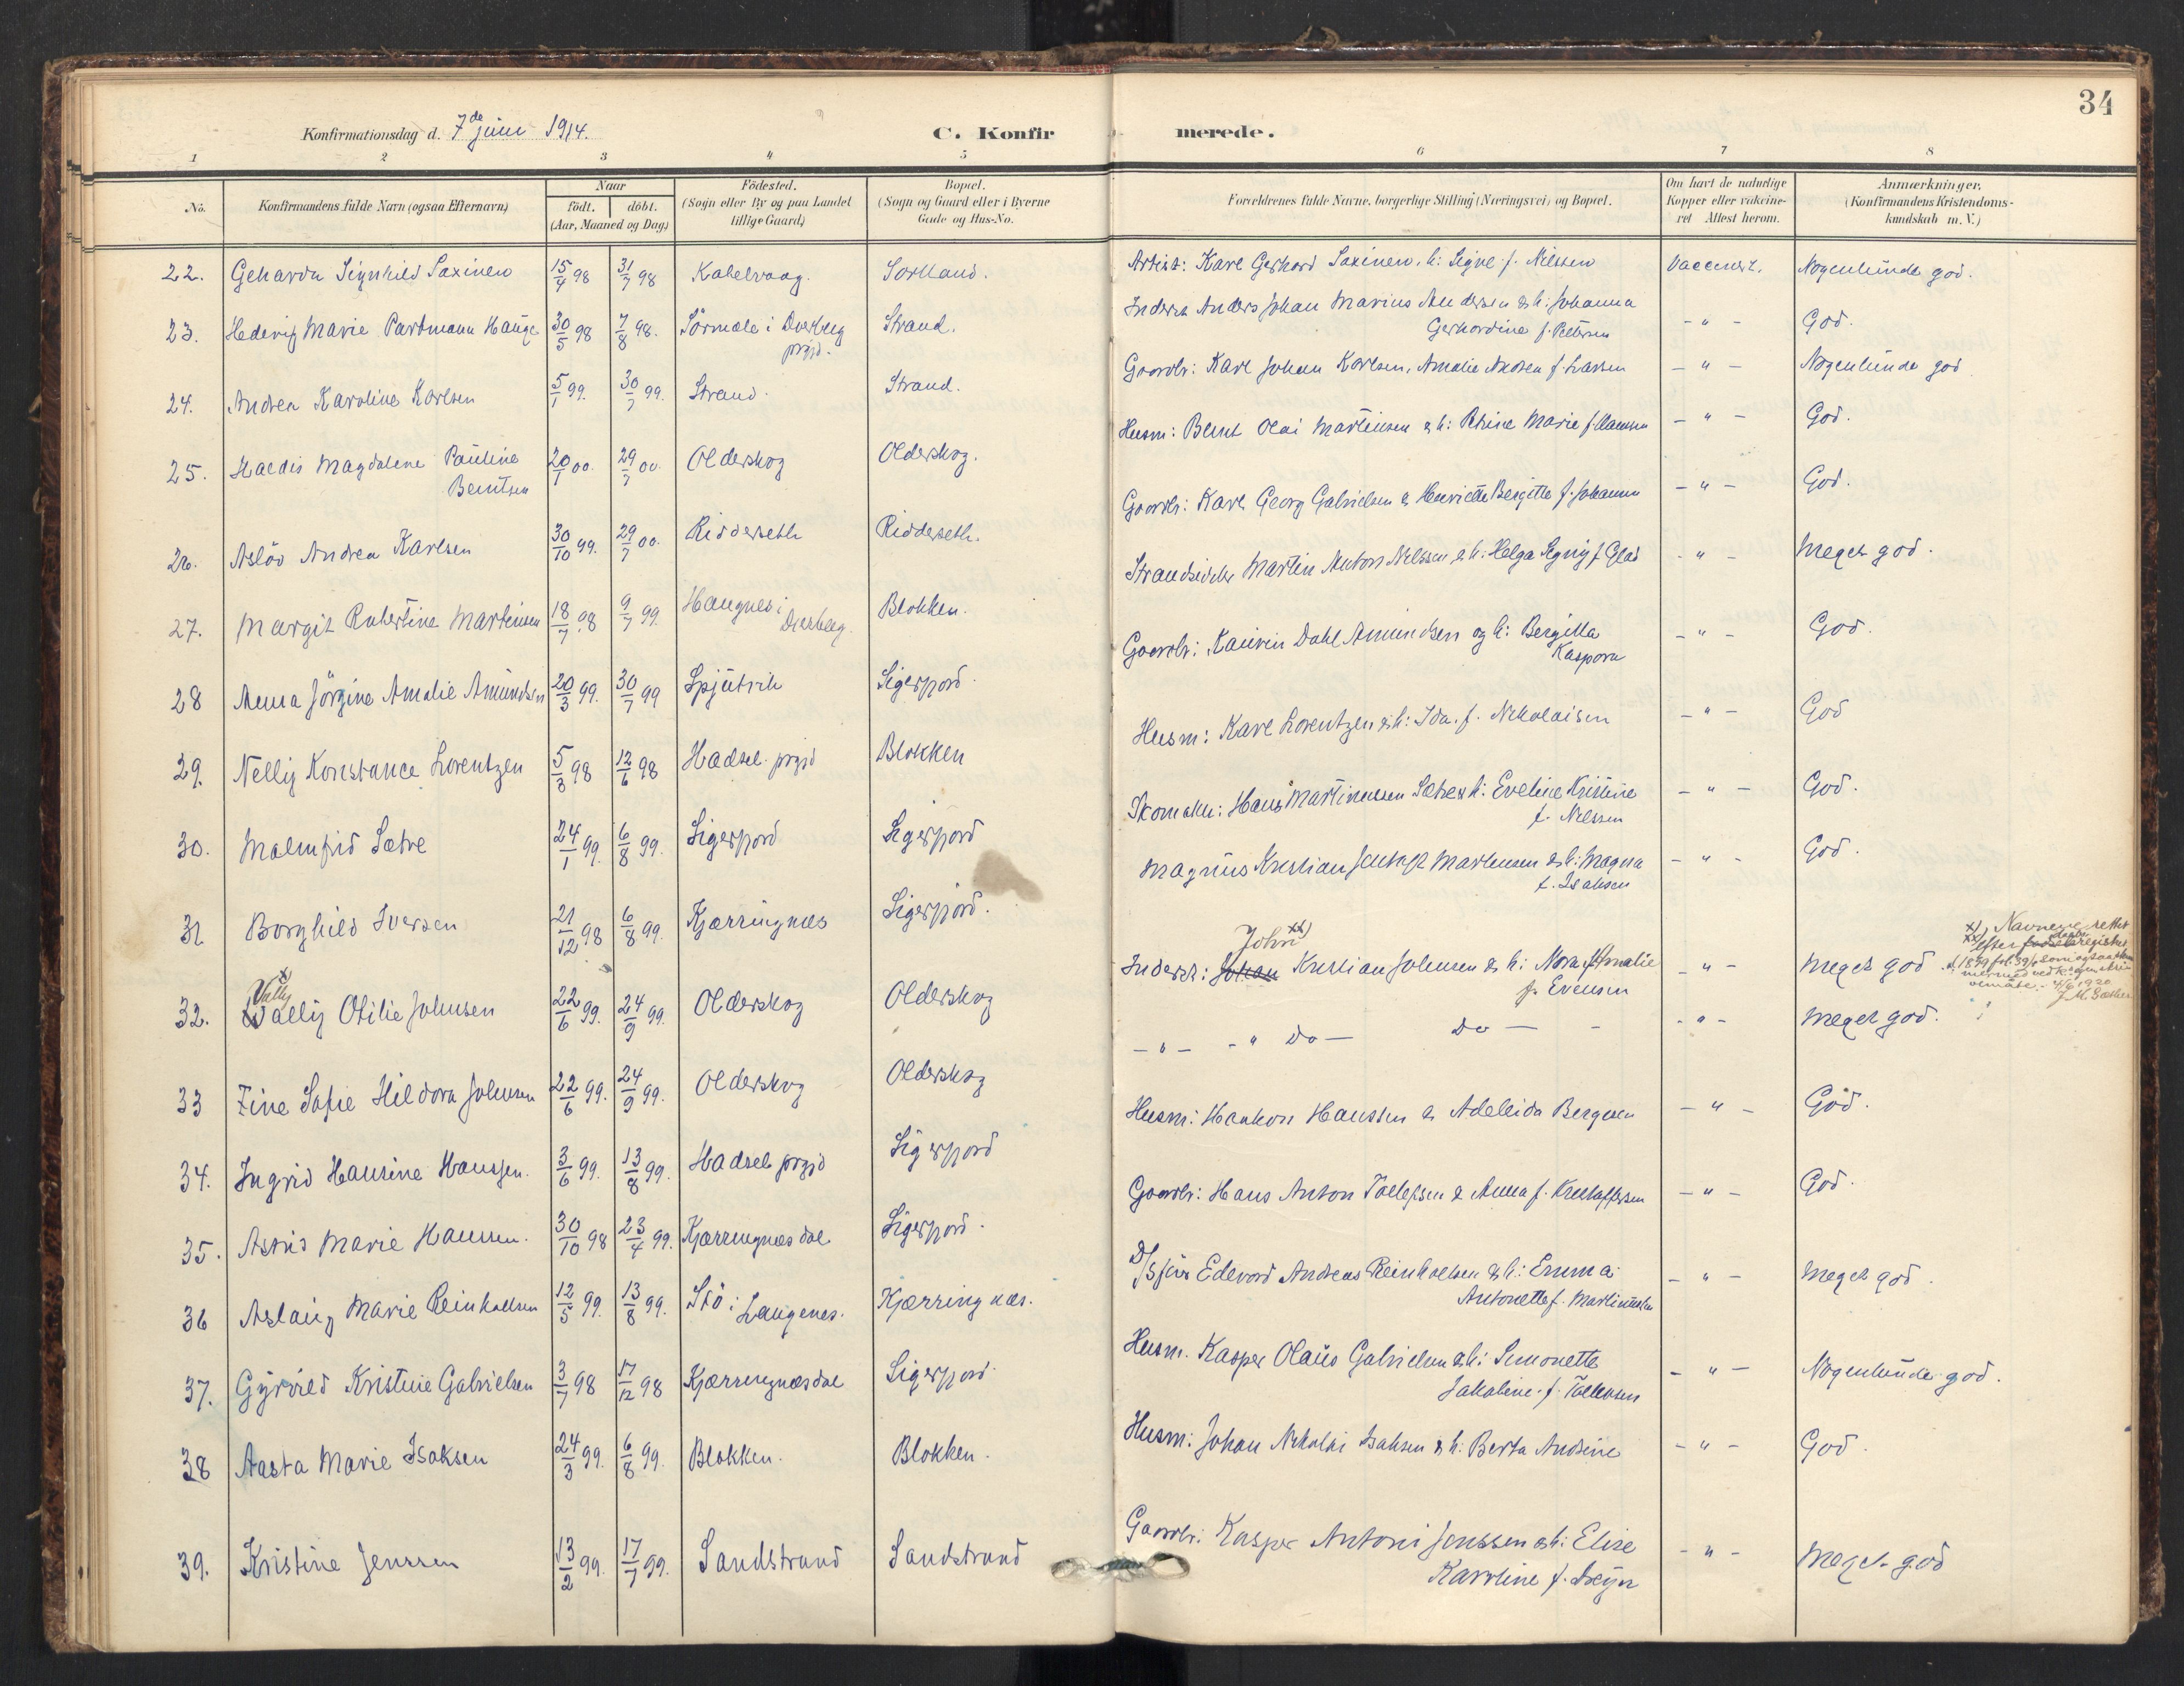 34
Konfirmationsdag d. 7de juni 1914.
C. Konfirmerede.
1 2 3 4 5 6 7 8
No.
Konfirmandens fulde Navn (ogsaa Efternavn)
Naar
födt. döbt.
(Aar, Maaned og Dag)
Födested.
(Sogn eller By og paa Landet
tillige Gaard)
Bopæl.
(Sogn og Gaard eller i Byerne
Gade og Hus-No.
Forældrenes fulde Navne, borgerlige Stilling (Næringsvei) og Bopæl.
Om havt de naturlige
Kopper eller vakcine-
ret Attest herom.
Anmærkninger.
(Konfirmandens Kristendoms-
kundskab m. V.)
22. Geharda Signhild Saxinen 15/4 98 31/7 98 Kabelvaag. Sortland. Artist: Karl Gerhard Saxinen. h: Signe f. Nilssen Vaccinert. Nogenlunde god.
23. Hedevig Marie Partmann Hauge 30/5 98 7/8 98. Sörmæle i Dverberg Strand. Inderst Anders Johan Marius Andersen & h: Johanna - " - God.
prgjd. Gerhardine f. Pettersen
24. Andrea Karoline Karlsen 5/1 99. 30/7 99. Strand. Strand. Gaardbr: Karl Johan Karlsen, Amalie f. Larsen - " - Nogenlunde god
25. Haldis Magdalene Pauline 20/1 00. 29/7 00. Olderskog Olderskog. Husm: Bernt Olai Martinsen & h: Petrine Marie f. - " - God.
Berntsen
26. Aslöv Andrea Karlsen 30/10 99. 29/7 00. Ridderseth Ridderseth. Gaardbr: Karl Georg Gabrielsen & Henriette Bergitte f. Johannsen - " - God.
27. Margit Robertine Martinsen 18/7 98 9/7 99. Haugnes i Blokken. Strandsidder Martin Anton Nilssen & h: Helga f. - " - Meget god.
Dverberg.
28 Anna Jörgine Amalie Amundsen 20/3 99. 30/7 99 Spjutvik Sigerfjord Gaardbr: Kaurin Dahl Amundsen og h: Bergitta - " - God.
Kaspara
29. Nelly Konstance Lorentzen 5/3 98 12/6 98 Hadsel prgjd Blokken Husm: Karl Lorentzen & h: Ida. f. Nikolaisen - " - God
30. Malmfrid Sætre 24/1 99. 6/8 99. Sigerfjord Sigerfjord Skomaker: Hans Martinussen Sætre & h: Eveline Kristine - " - God.
f. Nilssen
31 Borghild Iversen 21/12 98 6/8 99. Kjærringnæs Sigerfjord. Magnus Kristian Martinsen & h: Magna - " - God.
f. Isaksen
32. x) Vally Wally Otilie Johnsen 22/6 99. 24/9 99. Olderskog Olderskog Inderst: Johan John xx) Kristian Johnsen & h: Nora Amalie - " - Meget god.
f. Evensen
x) Navnene rettet
xx) efter fødsels daabsregister
1899 fol. 39
4/6 1920
33 Fine Sofie Hildora Johnsen 22/6 99. 24/9 99. Olderskog Olderskog - " - - " Do - Do - - - " - Meget god.
34. Ingrid Hansine Hanssen. 3/6 99. 13/8 99. Hadsel prgjd Sigerfjord Husm: Haakon Hanssen & Adeleida Bergesen - " - God.
35. Astrid Marie Hanssen. 30/10 98 23/4 99. Kjærringnæsdal Sigerfjord. Gaardbr: Hans Anton Tollefsen & Anna f. Kristoffersen - " - God.
36 Aslaug Marie Reinholtsen 12/5 99. 13/8 99. Stö i Langenes. Kjærringnæs. Edevard Andreas Reinholtsen & h: Emma - " - Meget god.
Antonette f. Martinussen
37. Gyrvild Kristine Gabrielsen 3/7 98 17/12 98 Kjærringnæsdal Sigerfjord. Husm. Kasper Olaus Gabrielsen & h: Simonette - " - Nogenlunde god.
Jakobine f. Tollefsen
38 Aasta Marie Isaksen 24/3 99. 6/8 99. Blokken. Blokken. Husm: Johan Nikolai Isaksen & h: Berta Andrine - " - God.
39. Kristine Jenssen 13/2 99. 17/7 99. Sandstrand Sandstrand Gaardbr: Kasper Antoni Jenssen & h: Elise - " - Meget god
Karoline f.